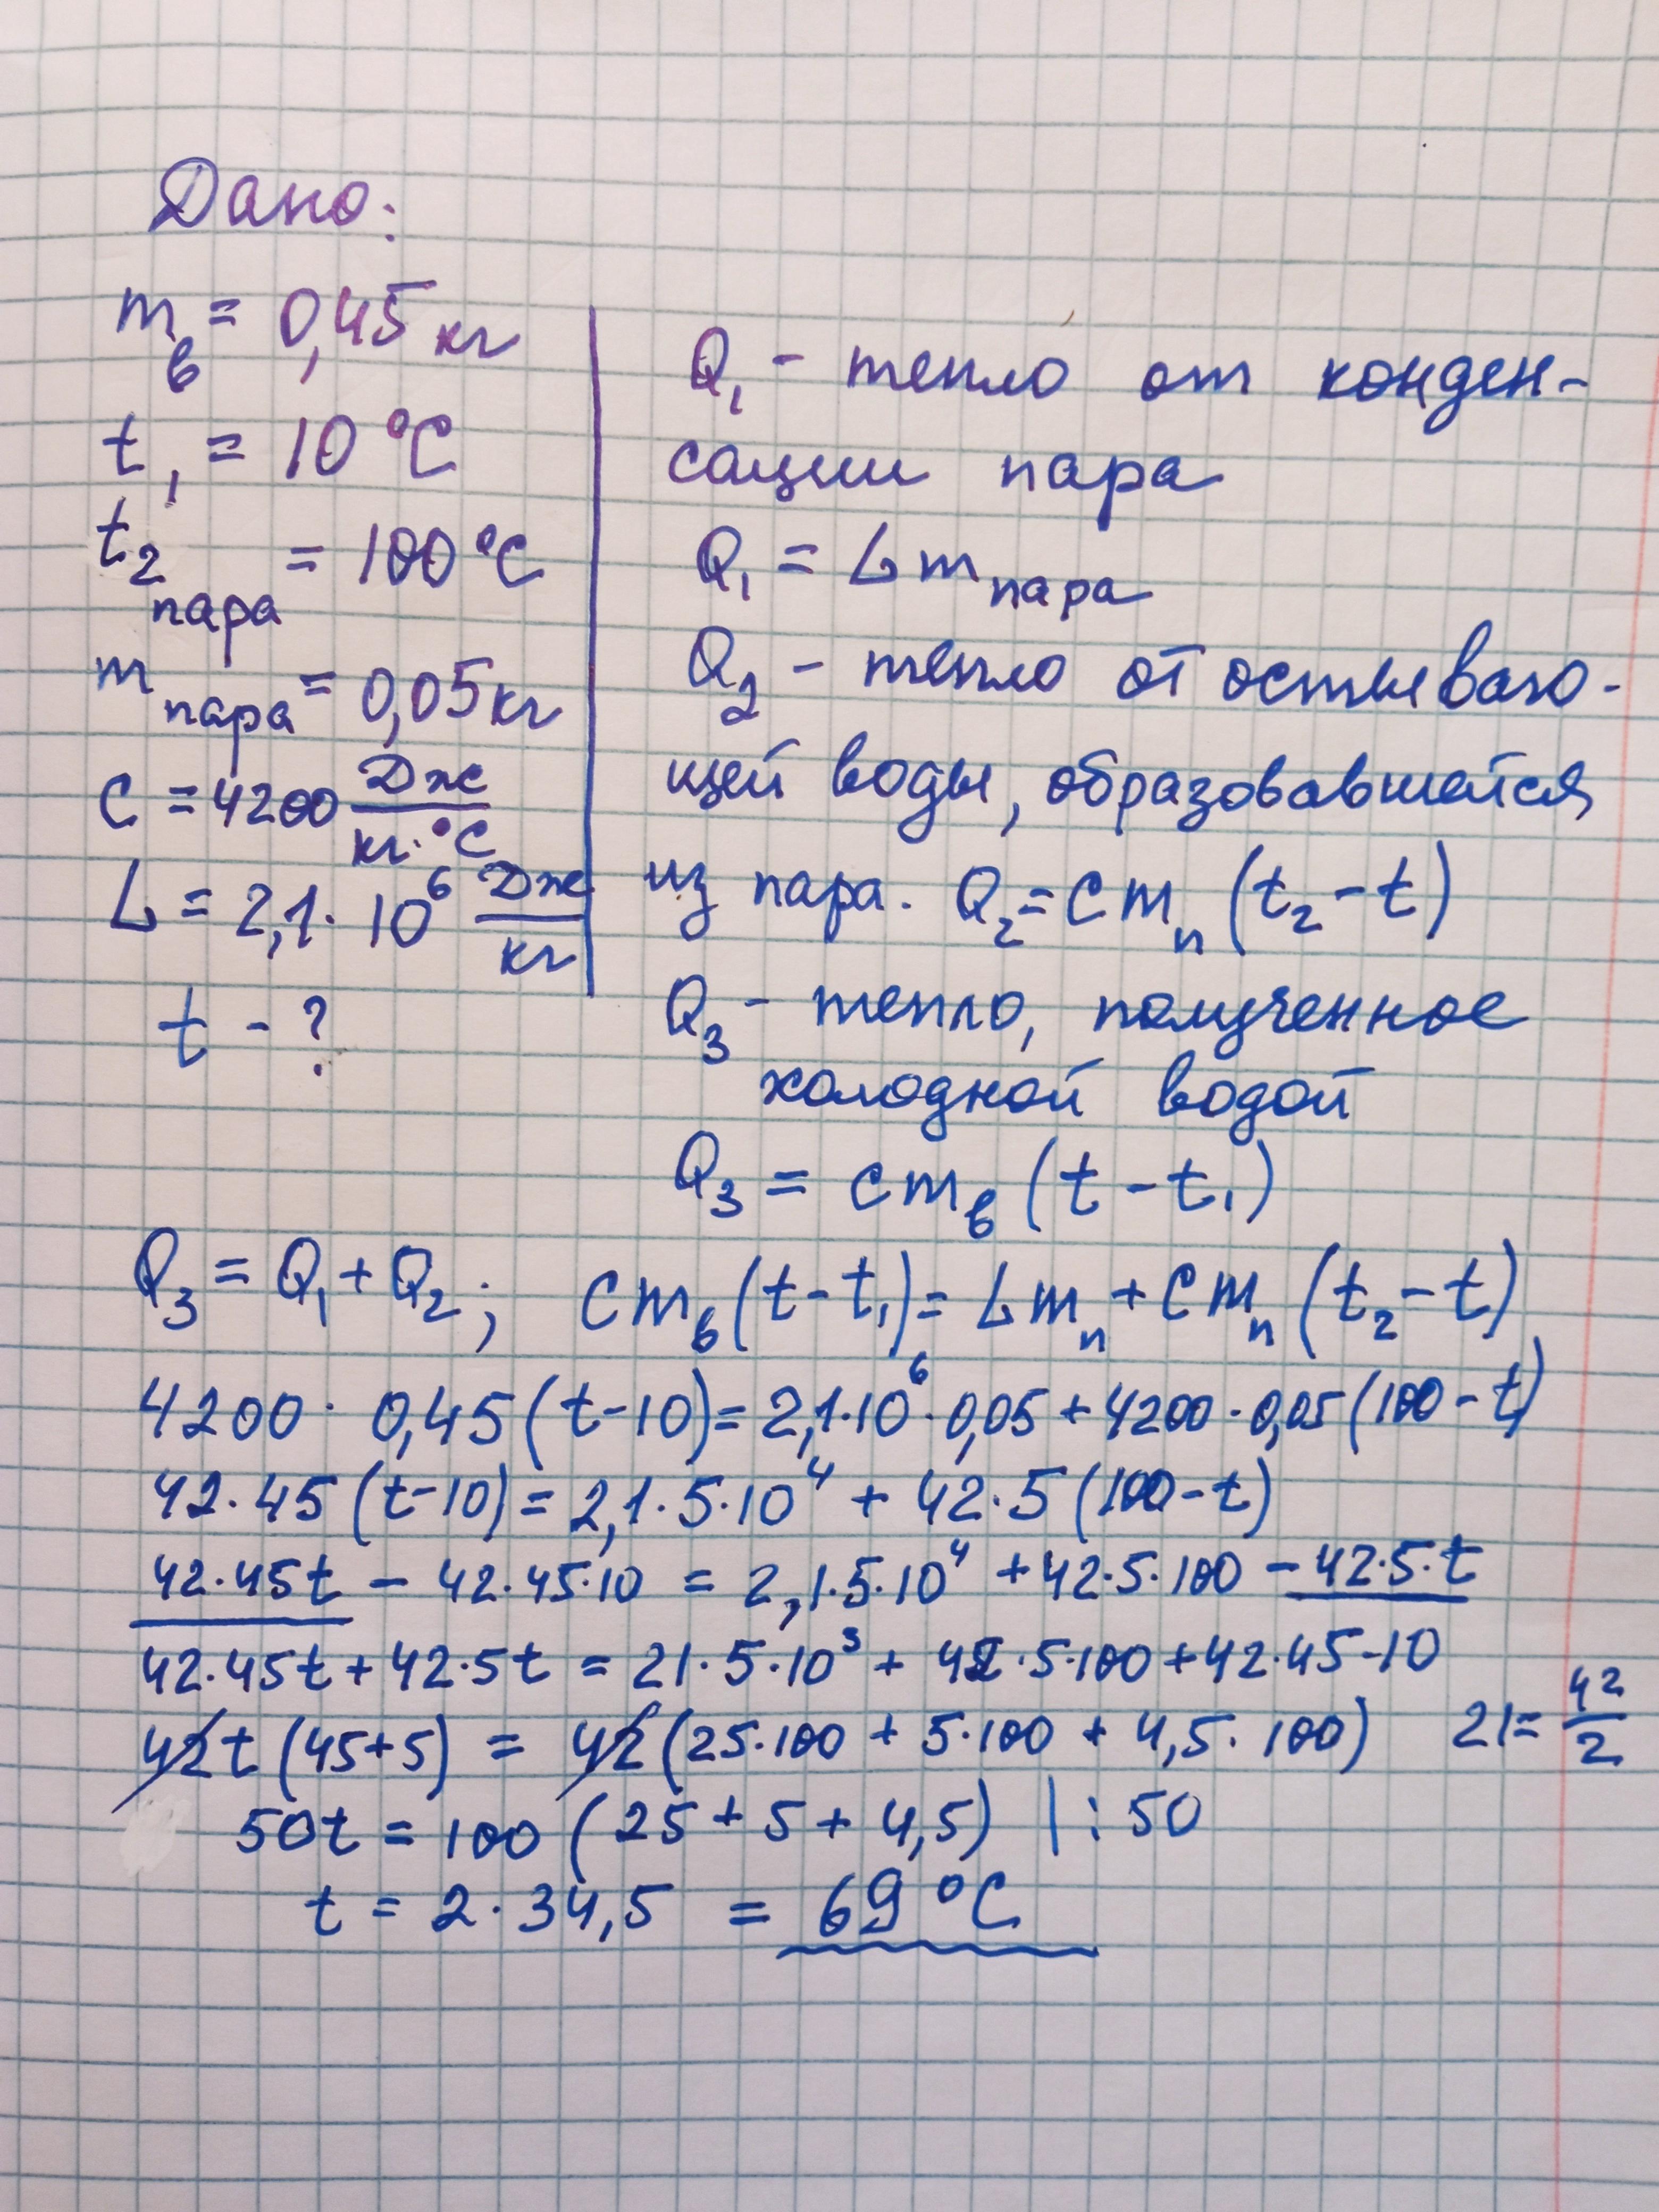 Дано:
m в = 0,45 кг
t₁ = 10 °C
t₂ пара = 100 °C
m пара = 0,05 кг
C = 4200 Дж/кг·°C
L = 2,1·10⁶ Дж/кг
t - ?
Q₁ - тепло от конден-
сации пара
Q₁ = L m пара
Q₂ - тепло от остываю-
щей воды, образовавшейся
из пара. Q₂ = C m п (t₂ - t)
Q₃ - тепло, полученное
холодной водой
Q₃ = c m в (t - t₁)
Q₃ = Q₁ + Q₂; C m в (t - t₁) = L m п + C m п (t₂ - t)
4200 · 0,45 (t - 10) = 2,1·10⁶·0,05 + 4200·0,05 (100 - t)
42·45 (t - 10) = 2,1·5·10⁴ + 42·5 (100 - t)
42·45t - 42·45·10 = 2,1·5·10⁴ + 42·5·100 - 42·5·t
42·45t + 42·5t = 21·5·10³ + 42·5·100 + 42·45·10
42t (45+5) = 42 (25·100 + 5·100 + 4,5·100) 21 = 42/2
50t = 100 (25 + 5 + 4,5) | : 50
t = 2·34,5 = 69 °C